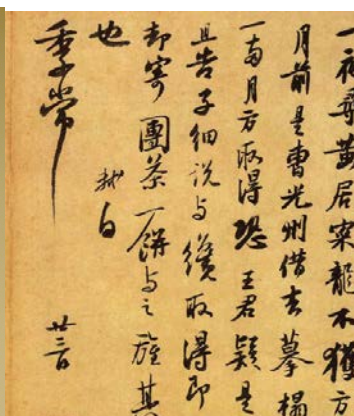 一夜尋黄居寀龍不獲方
月前是曹光州借去摹榻
一兩月方取得恐王君疑是
且告子細說与纔取得即
却寄團茶一餅与之旌其
也
季常
軾白
廿三日